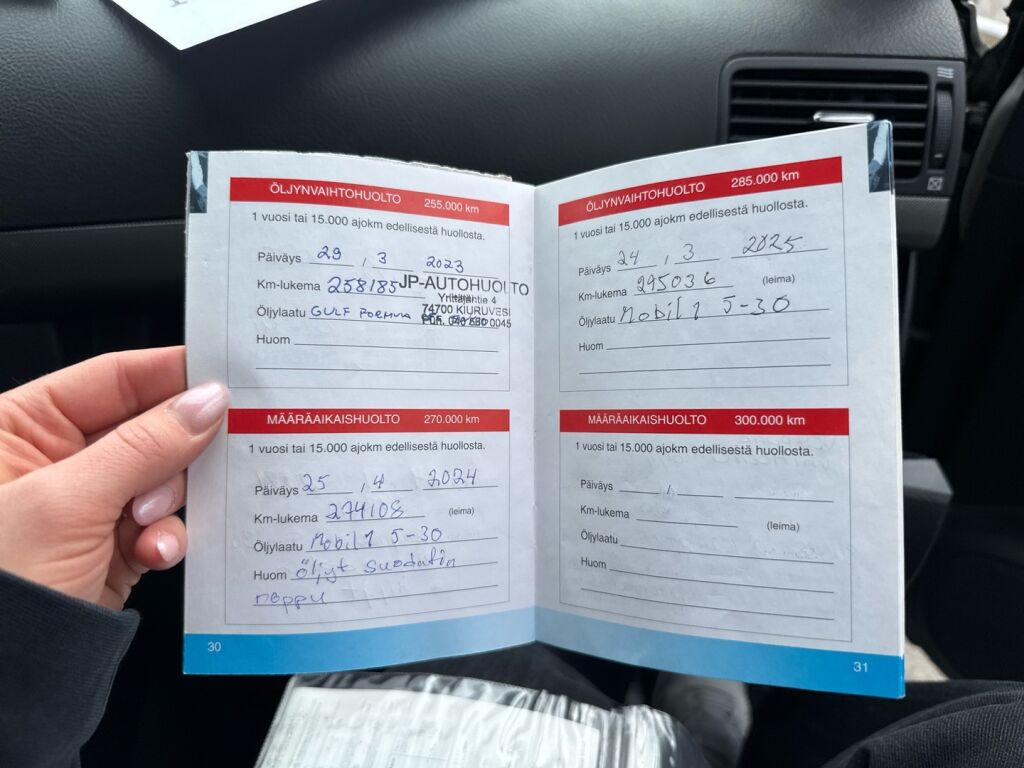 ÖLJYNVAIHTOHUOLTO 255.000 km
1 vuosi tai 15.000 ajokm edellisestä huollosta.
Päiväys 29 , 3 2023
Km-lukema 258185
JP-AUTOHUOLTO
Yrittäjäntie 4
74700 KIURUVESI
Öljylaatu GULF FORMULA
PUH. 040 680 0045
Huom
MÄÄRÄAIKAISHUOLTO 270.000 km
1 vuosi tai 15.000 ajokm edellisestä huollosta.
Päiväys 25 , 4 2024
Km-lukema 274108 (leima)
Öljylaatu Mobil 1 5-30
Huom öljyt suodatin
30
ÖLJYNVAIHTOHUOLTO 285.000 km
1 vuosi tai 15.000 ajokm edellisestä huollosta.
Päiväys 24 , 3 2025
Km-lukema 295036 (leima)
Öljylaatu Mobil 1 5-30
Huom
MÄÄRÄAIKAISHUOLTO 300.000 km
1 vuosi tai 15.000 ajokm edellisestä huollosta.
Päiväys ,
Km-lukema (leima)
Öljylaatu
Huom
31